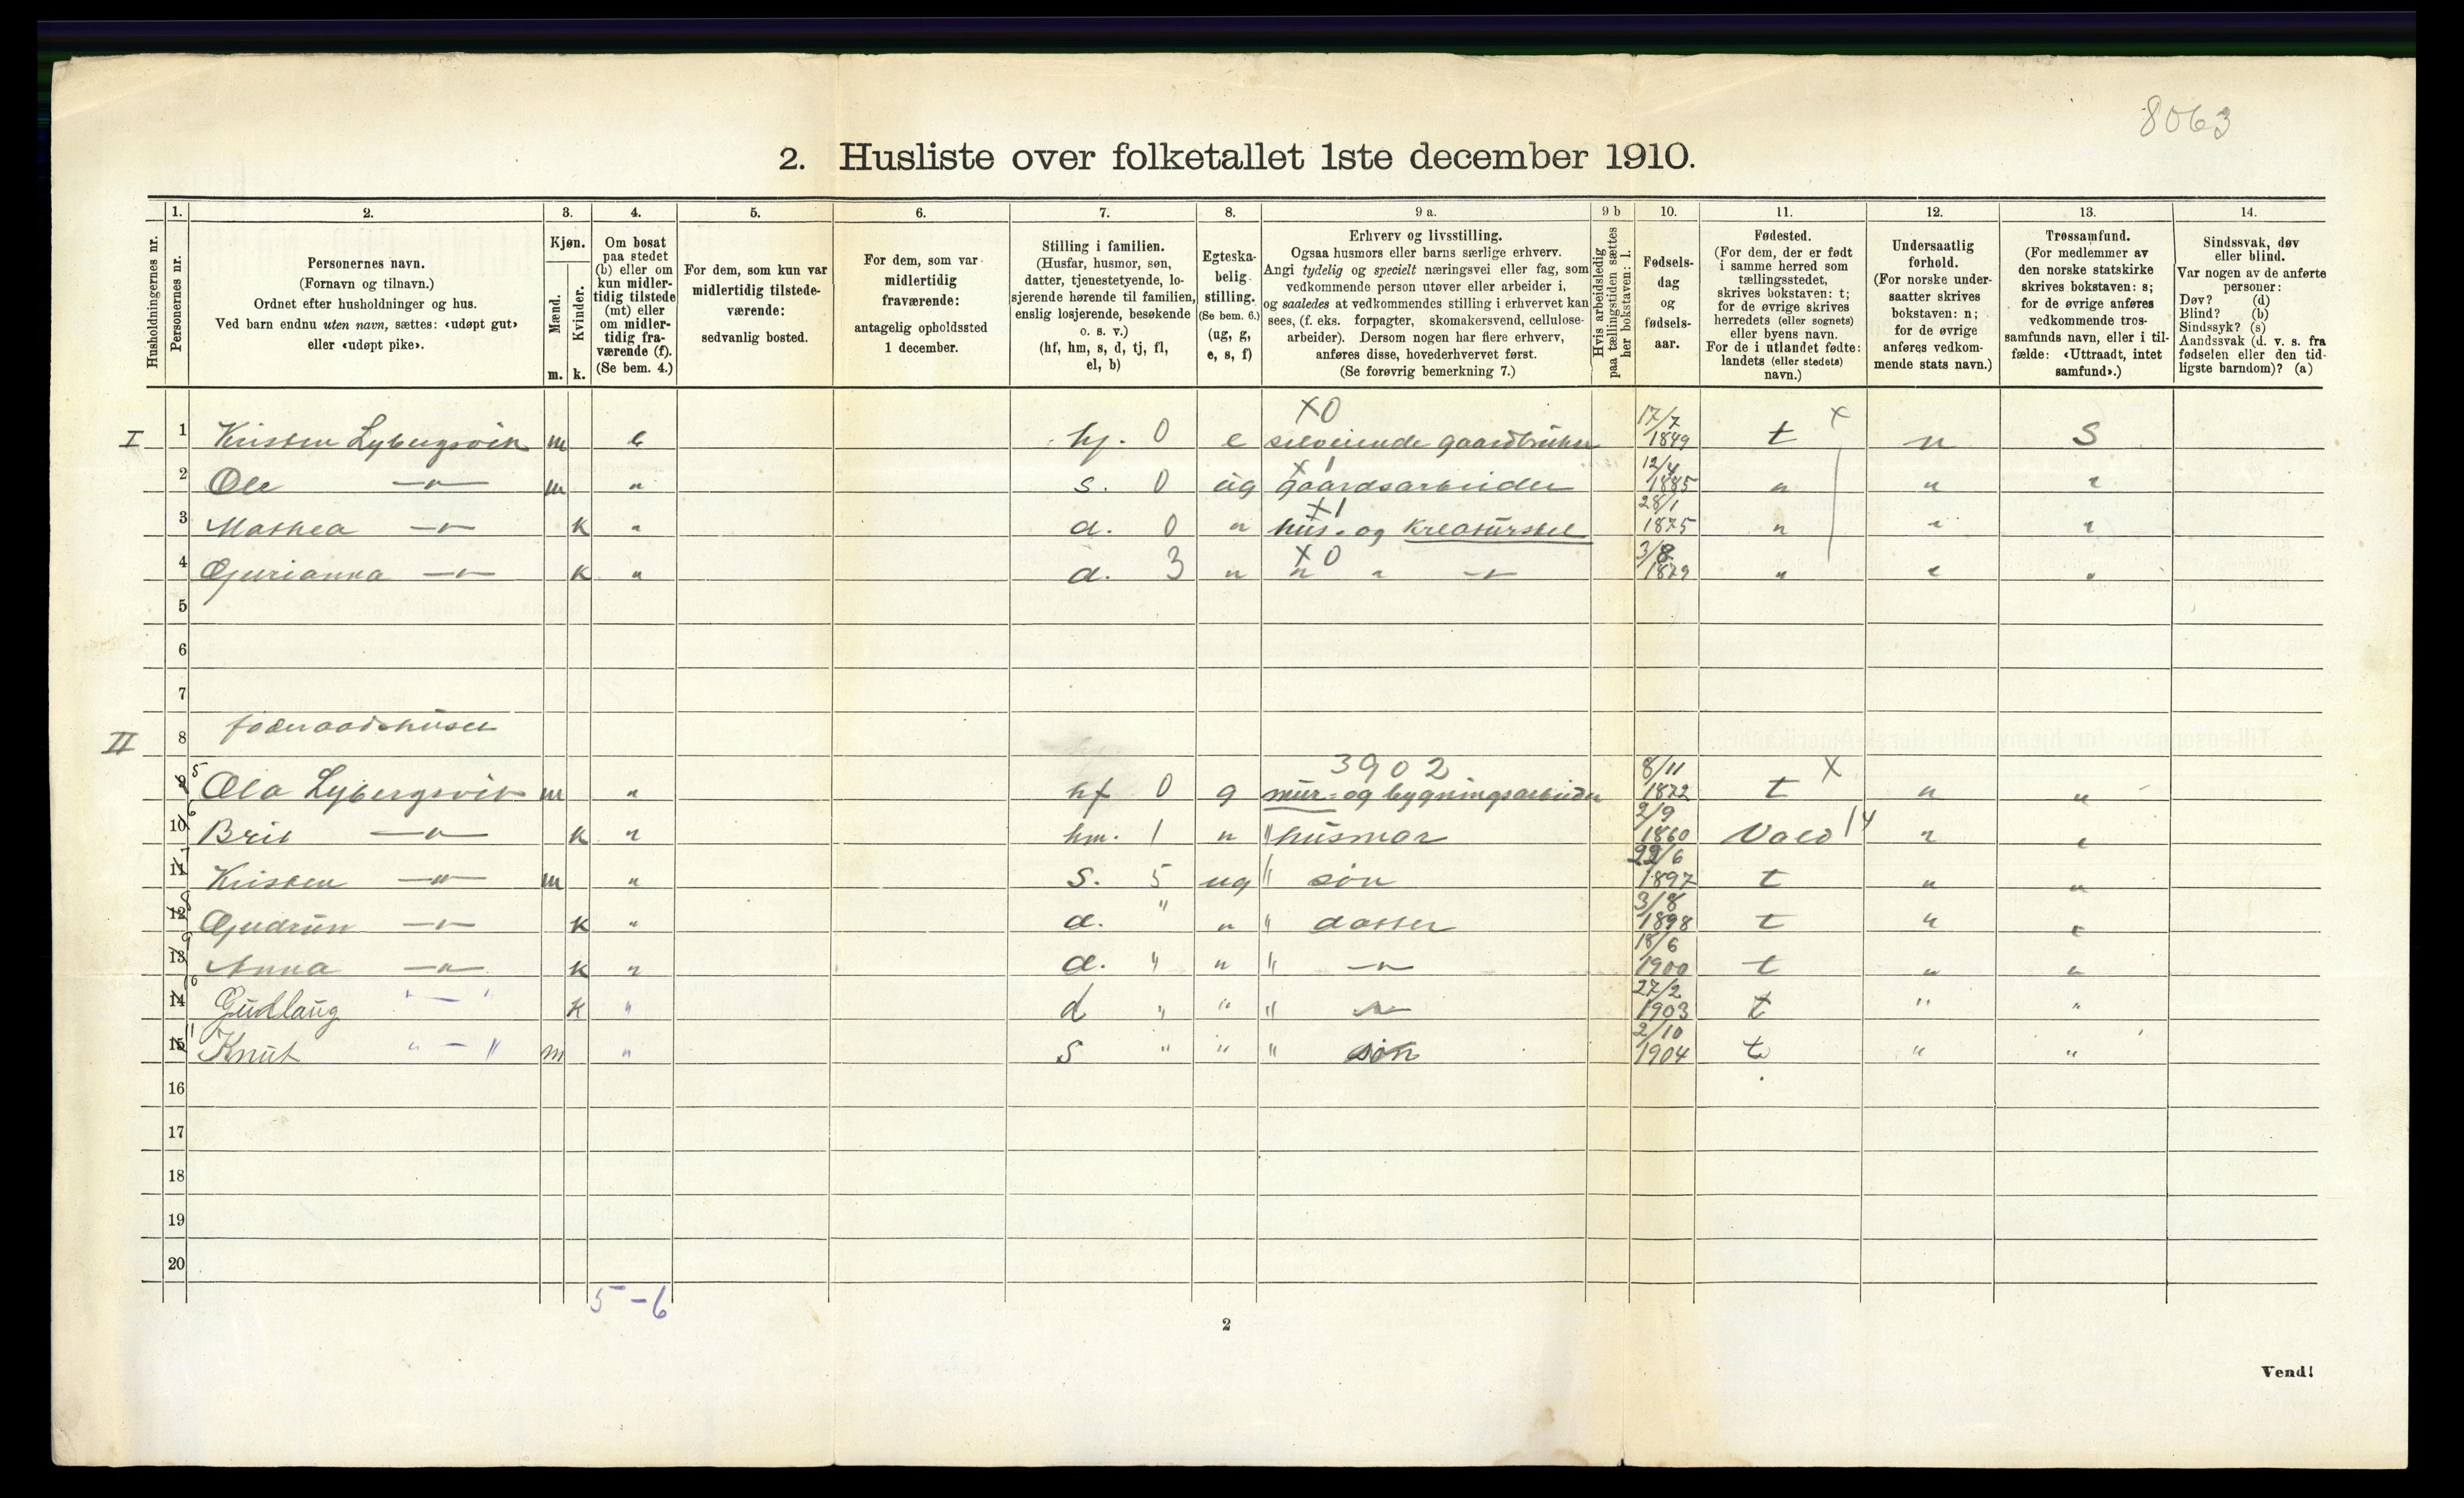 8063
2. Husliste over folketallet 1ste december 1910.
Husholdningernes nr. | 1. Personernes nr. | 2. Personernes navn. (Fornavn og tilnavn.) Ordnet efter husholdninger og hus. Ved barn endnu uten navn, sættes: «udøpt gut» eller «udøpt pike». | 3. Kjøn. Mænd. m. Kvinder. k. | 4. Om bosat paa stedet (b) eller om kun midlertidig tilstede (mt) eller om midlertidig fraværende (f). (Se bem. 4.) | 5. For dem, som kun var midlertidig tilstedeværende: sedvanlig bosted. | 6. For dem, som var midlertidig fraværende: antagelig opholdssted 1 december. | 7. Stilling i familien. (Husfar, husmor, søn, datter, tjenestetyende, losjerende hørende til familien, enslig losjerende, besøkende o. s. v.) (hf, hm, s, d, tj, fl, el, b) | 8. Egteskabelig stilling. (Se bem. 6.) (ug, g, e, s, f) | 9 a. Erhverv og livsstilling. Ogsaa husmors eller barns særlige erhverv. Angi tydelig og specielt næringsvei eller fag, som vedkommende person utøver eller arbeider i, og saaledes at vedkommendes stilling i erhvervet kan sees, (f. eks. forpagter, skomakersvend, cellulosearbeider). Dersom nogen har flere erhverv, anføres disse, hovederhvervet først. (Se forøvrig bemerkning 7.) | 9 b Hvis arbeidsledig paa tællingstiden sættes her bokstaven: l. | 10. Fødselsdag og fødselsaar. | 11. Fødested. (For dem, der er født i samme herred som tællingsstedet, skrives bokstaven: t; for de øvrige skrives herredets (eller sognets) eller byens navn. For de i utlandet fødte: landets (eller stedets) navn.) | 12. Undersaatlig forhold. (For norske undersaatter skrives bokstaven: n; for de øvrige anføres vedkommende stats navn.) | 13. Trossamfund. (For medlemmer av den norske statskirke skrives bokstaven: s; for de øvrige anføres vedkommende trossamfunds navn, eller i tilfælde: «Uttraadt, intet samfund».) | 14. Sindssvak, døv eller blind. Var nogen av de anførte personer: Døv? (d) Blind? (b) Sindssyk? (s) Aandssvak (d. v. s. fra fødselen eller den tidligste barndom)? (a)
I 1 Kristen Lybergsvik m b hf. 0 e X0 selveiende gaardbruker 17/7 1849 t X n S
2 Ole —"— m " s. 0 ug X1 gaardsarbeider 12/4 1885 " " "
3 Mathea —"— k " d. 0 " X1 hus- og kreaturstel 28/1 1875 " " "
4 Gurianna —"— k " d. 3 " X0 " " —"— 3/8 1879 " " "
5
6
7
II 8 føderaadshuset
9 5 Ola Lybergsvik m " hf 0 g 3902 mur- og bygningsarbeider 8/11 1872 t X " "
10 6 Brit —"— k " hm. 1 " " husmor 2/9 1860 Vald 14 " "
11 7 Kristen —"— m " s. 5 ug " søn 22/6 1897 t " "
12 8 Gudrun —"— k " d. " " " datter 3/8 1898 t " "
13 9 Anna —"— k " d. " " " —"— 18/6 1900 t " "
14 10 Gudlaug "—" k " d " " " —"— 27/2 1903 t " "
15 11 Knut "—" m " s " " " søn 2/10 1904 t " "
16
17
18
19
20
5 – 6
2
Vend!